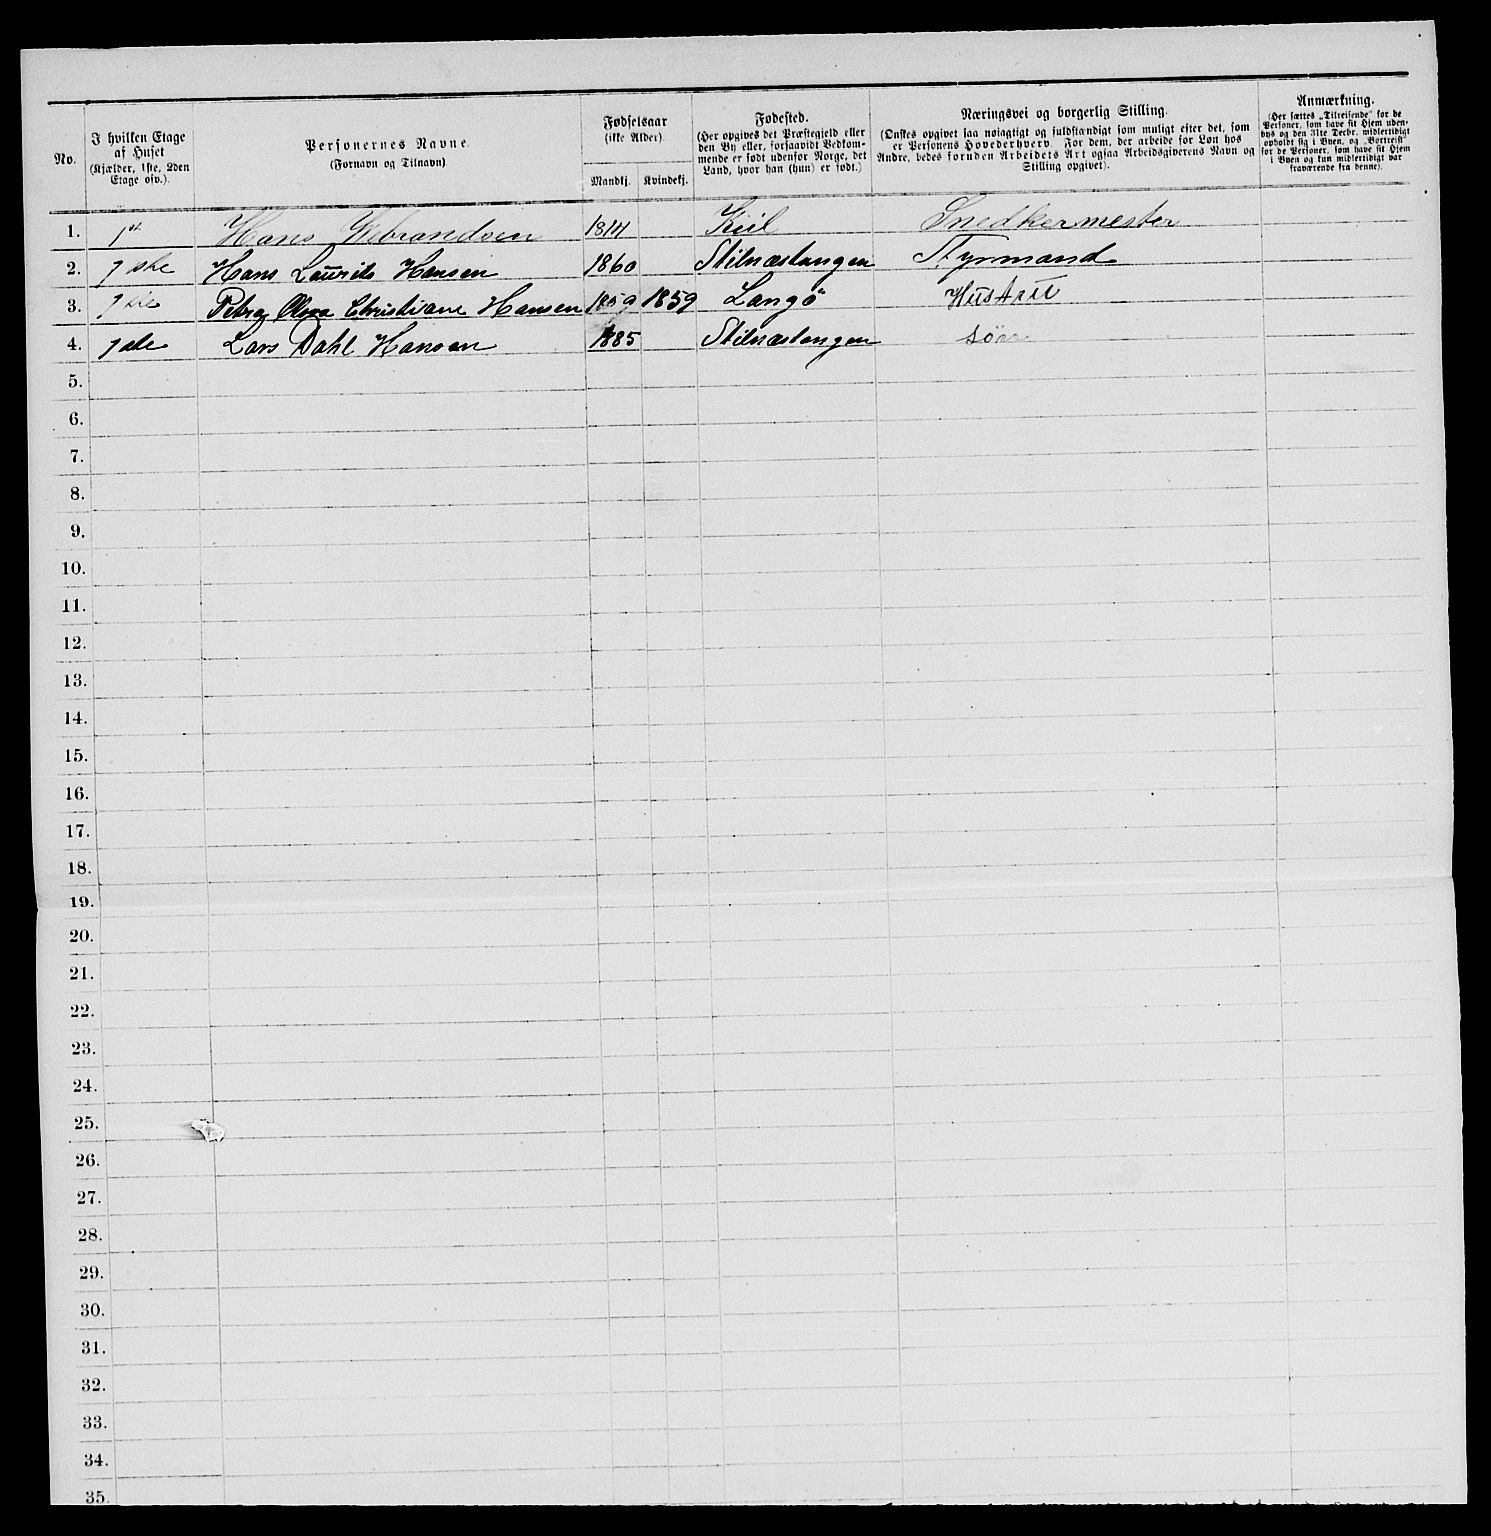 No.
I hvilken Etage af Huset (Kjælder, 1ste, 2den Etage osv.).
Personernes Navne. (Fornavn og Tilnavn).
Fødselsaar (ikke Alder). Mandkj. Kvindekj.
Fødested. (Her opgives det Præstegjeld eller den By eller, forsaavidt Vedkommende er født udenfor Norge, det Land, hvor han (hun) er født.)
Næringsvei og borgerlig Stilling. (Ønskes opgivet saa nøiagtigt og fuldstændigt som muligt efter det, som er Personens Hovederhverv. For dem, der arbeide for Løn hos Andre, bedes foruden Arbeidets Art ogsaa Arbeidsgiverens Navn og Stilling opgivet).
Anmærkning. (Her sættes „Tilreisende“ for de Personer, som have sit Hjem udenbys og den 31te Decbr. midlertidigt opholdt sig i Byen, og „Bortreist“ for de Personer, som have sit Hjem i Byen og kun midlertidigt var fraværende fra denne).
1. 1st Hans 1814 Kiil Snedkermester
2. 1ste Hans Laurits Hansen 1860 Stilnæstangen Styrmand
3. 1ste Petra Olega Christiane Hansen 1859 1859 Langö Hustru
4. 1ste Lars Dahl Hansen 1885 Stilnæstangen sön
5.
6.
7.
8.
9.
10.
11.
12.
13.
14.
15.
16.
17.
18.
19.
20.
21.
22.
23.
24.
25.
26.
27.
28.
29.
30.
31.
32.
33.
34.
35.